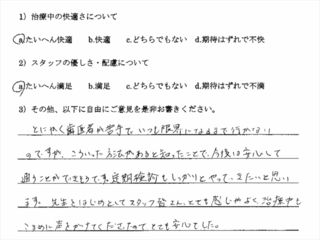 1）治療中の快適さについて
a.たいへん快適　b.快適　c.どちらでもない　d.期待はずれで不快
2）スタッフの優しさ・配慮について
a.たいへん満足　b.満足　c.どちらでもない　d.期待はずれで不満
3）その他、以下に自由にご意見を是非お書きください。
とにかく歯医者が苦手で、いつも限界になるまで行かない
のですが、こういった方法があると知ったことで、今後は安心して
通うことができそうです。定期検診もしっかりとやっていきたいと思い
ます。先生をはじめとしてスタッフ皆さん、とても感じがよく、治療中も
こまめに声をかけてくださったのでとても安心でした。